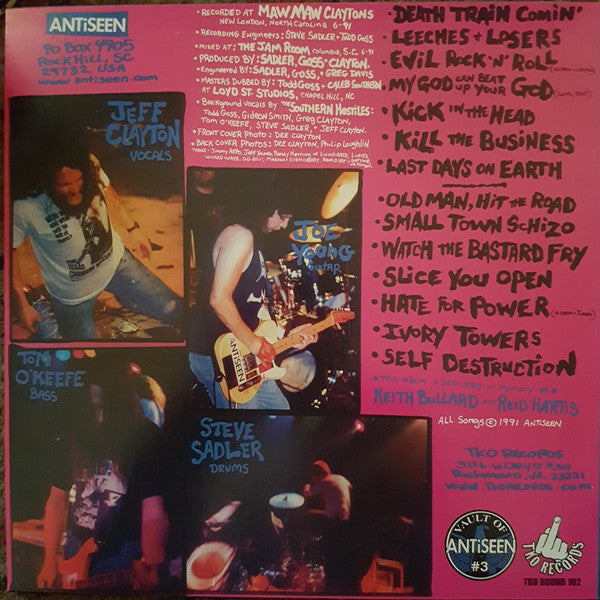 ANTiSEEN
PO Box 4905
Rock Hill, SC
29732 USA
www.antiseen.com
JEFF
CLAYTON
VOCALS
JOE
YOUNG
GUITAR
ANTiSEEN
TOM
O'KEEFE
BASS
STEVE
SADLER
DRUMS
• RECORDED AT MAW MAW CLAYTONS
NEW LONDON, NORTH CAROLINA 6-91
• RECORDING Engineers: STEVE SADLER + TODD GOSS
• MIXED AT: THE JAM ROOM COLUMBIA, S.C. 6-91
• PRODUCED BY: SADLER, GOSS + CLAYTON.
• Engineered BY: SADLER, GOSS, + GREG DAVIS
• MASTERS DUBBED BY: TODD GOSS + CALEB SOUTHERN
AT LOYD ST. STUDIOS, CHAPEL HILL, NC
• BACKGROUND VOCALS BY THE SOUTHERN HOSTILES:
TODD GOSS, GIDEON SMITH, GREG CLAYTON,
TOM O'KEEFE, STEVE SADLER, + JEFF CLAYTON.
• FRONT COVER PHOTO: DEE CLAYTON
• BACK COVER PHOTOS: DEE CLAYTON, Phillip Loughlin
• DEATH TRAIN COMIN'
• LEECHES + LOSERS
• EVIL ROCK 'N' ROLL
• MY GOD CAN BEAT UP YOUR GOD
• KICK IN THE HEAD
• KILL THE BUSINESS
• LAST DAYS ON EARTH
• OLD MAN, HIT THE ROAD
• SMALL TOWN SCHIZO
• WATCH THE BASTARD FRY
• SLICE YOU OPEN
• HATE FOR POWER
• IVORY TOWERS
• SELF DESTRUCTION
THIS ALBUM IS DEDICATED IN MEMORY OF
KEITH BULLARD AND REID HARTIS
ALL SONGS © 1991 ANTISEEN
TKO RECORDS
3126 W. CARY ST #303
RICHMOND, VA. 23221
WWW.TKORECORDS.COM
VAULT OF
ANTiSEEN
#3
TKO RECORDS
TKO ROUND 182